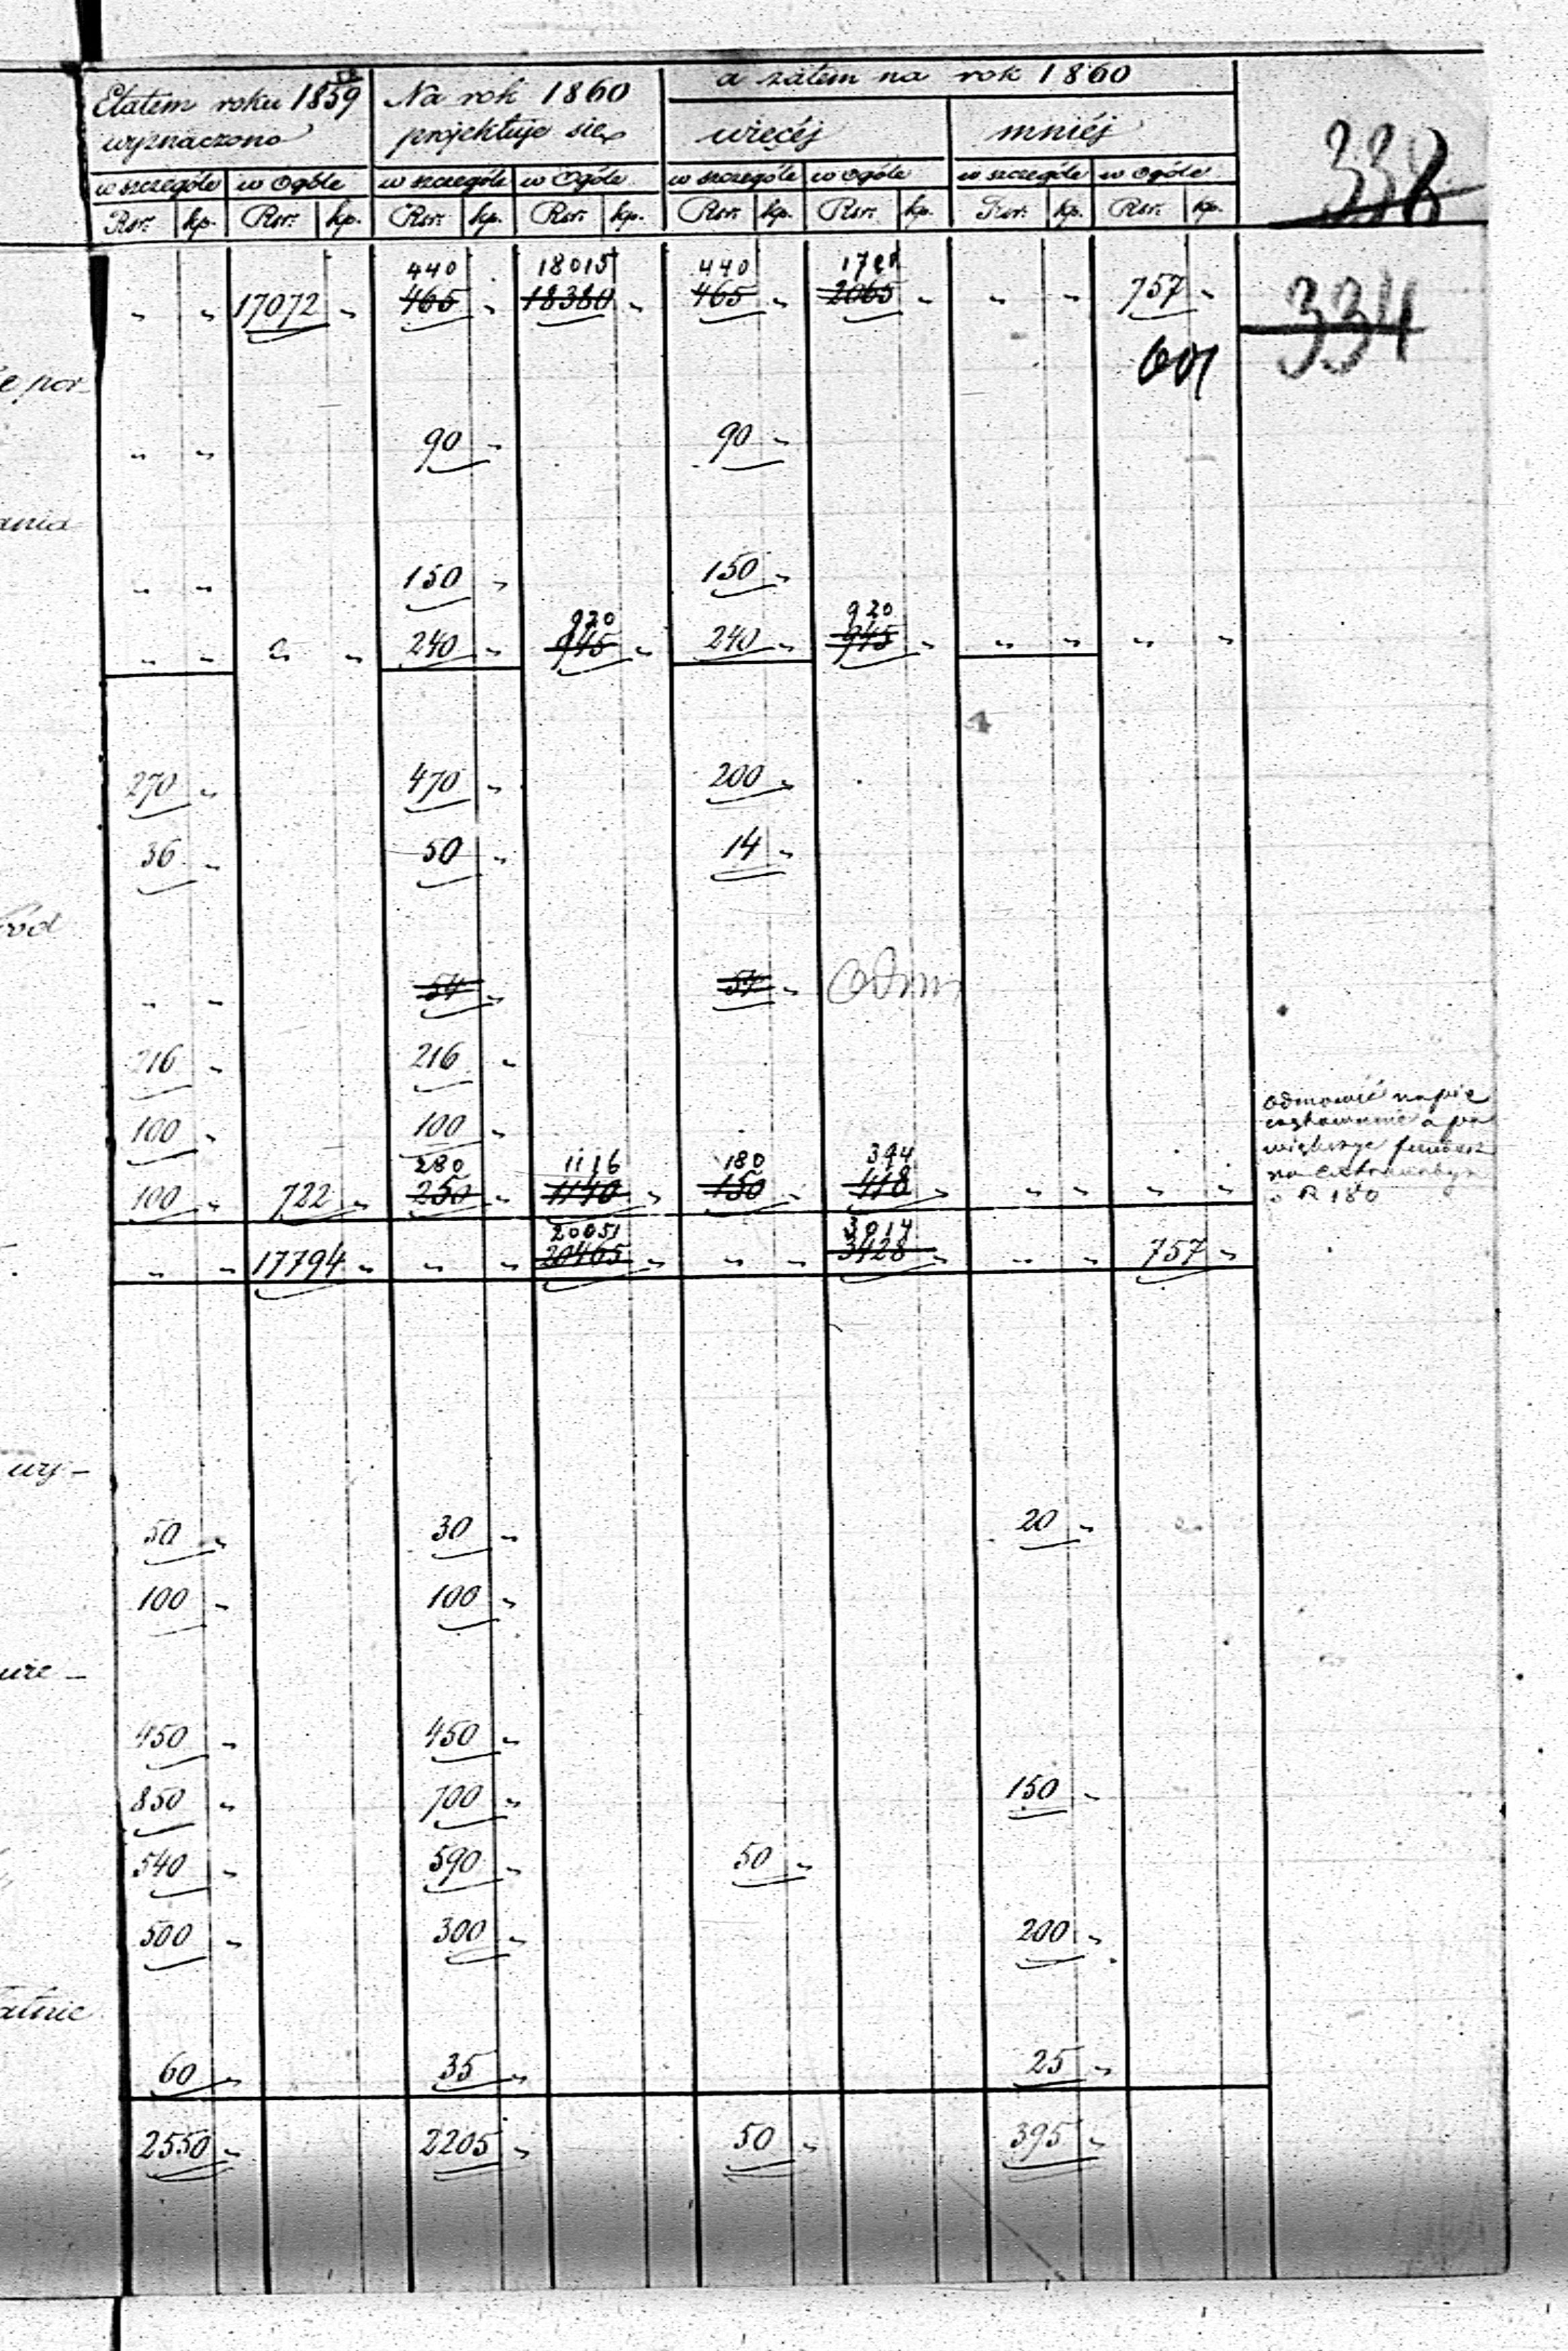 Etatem roku 1859 58 Na rok 1860 a zatem na rok 1860
wyznaczono projektuje się więcéj mniéj 338
w szczególe w Ogóle w szczególe w Ogóle w szczególe w Ogóle w szczególe w Ogóle
Rsr. kp. Rsr. kp. Rsr. kp. Rsr. kp. Rsr. kp. Rsr. kp. Rsr. kp. Rsr. kp.
440 18015 440
" " 17072 " 465 " 18380 " 465 " 2065 " " " 757 " 334
" " 90 " 90 "
ania
" " 150 " 150 "
920 920
" " " " 240 " 945 " 240 " 945 " " " " "
270 " 470 " 200 "
36 " 50 " 14 "
" " 54 " 54 "
216 " 216 "
100 " 100 "
280 1116 180 394
100 " 722 " 250 " 1140 " 150 " 418 " " " " "
odmówić na
a
większyć fundusz
na
o R 180
20051 3014
" " 17794 " " " 20465 " " " 3428 " " " 757 "
wy-
50 " 30 " 20 "
100 " 100 "
450 " 450 "
850 " 700 " 150 "
540 " 590 " 50 "
500 " 300 " 200 "
atnie
60 " 35 " 25 "
2550 " 2205 " 50 " 395 "